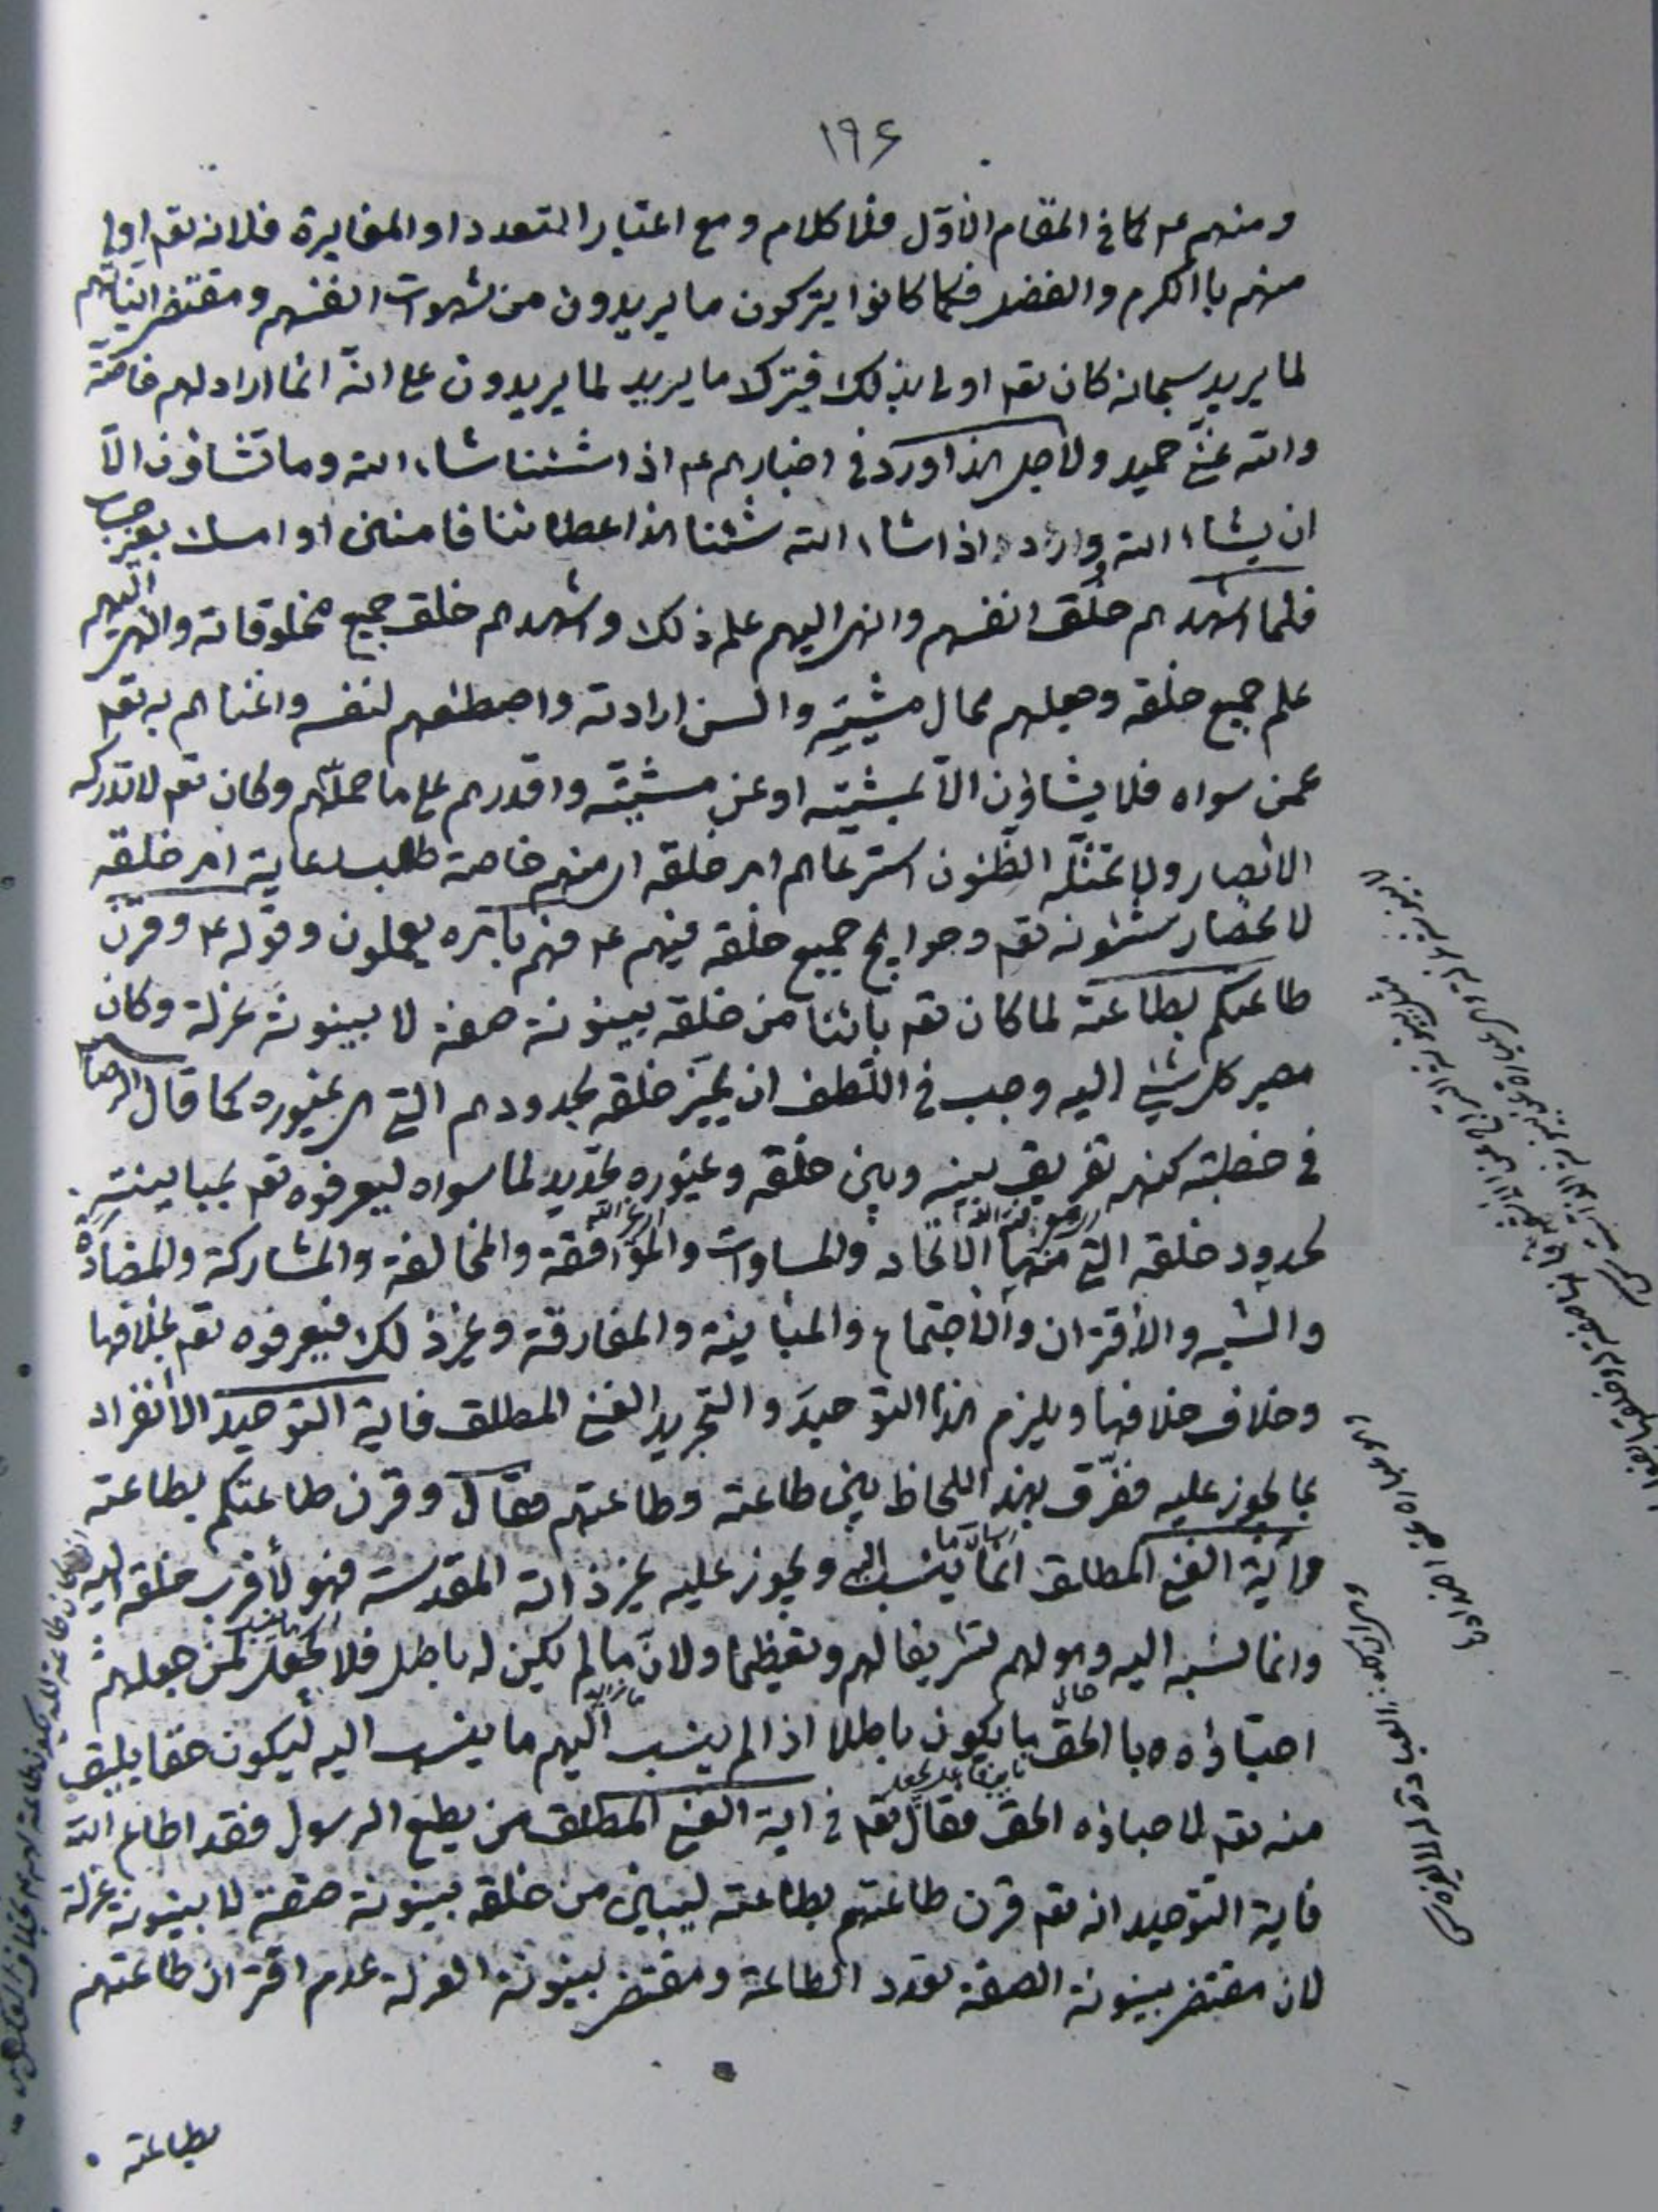 ١٩۶
ومنهم عم كما في المقام الاوّل فلا كلام ومع اعتبار التعدد او المغايرة فلانه تعم اولى
منهم بالكرم والفضل فكما كانوا يتركون ما يريدون من شهوات انفسهم ومقتضى انياتهم
لما يريد سبحانه كان تعم اولى بذلك فيترك ما يريد لما يريدون على انّه انما اراد لهم خاصّة
والله غنىّ حميد ولاجل هذا ورد في اخبارهم عم اذا شئنا شاء الله وما تشاؤن الّا
ان يشاء الله واراد اذا شاء الله شئنا هذا عطاؤنا فامنن او امسك بغير حساب
فلما اشهدهم خلق انفسهم وانهى اليهم علم ذلك واشهدهم خلق جميع مخلوقاته وانهى اليهم
علم جميع خلقه وجعلهم محال مشيته والسن ارادته واصطنعهم لنفسه واغناهم به تعم
عمن سواه فلا يشاؤن الّا بمشيته او عن مشيّته واقدرهم على ما حملّهم وكان تعم لا تدركه
الابصار ولا تمثله الظّنون استرعاهم امر خلقه اى منهم خاصة طلب رعاية امر خلقه
لانحصار شئونه تعم وحوايج جميع خلقه فيهم عم فهم بامره يعملون وقوله عم وقرن
طاعتكم بطاعته لما كان تعم بائنا من خلقه بينونة صفة لا بينونة عزلة وكان
مصير كل شئ اليه وجب في اللّطف ان يميّز خلقه بحدودهم التي هي غيوره كما قال الرضا
في خطبته كنهه تفريق بينه وبين خلقه وغيوره تحديد لما سواه ليعرفوه تعم بمباينته
لحدود خلقه التي منها الاتحاد والمساوات والموافقة والمخالفة والمشاركة والمضادّة
والشبه والاقتران والاجتماع والمباينة والمفارقة وغير ذلك فيعرفوه تعم بخلافها
وخلاف خلافها ويلزم هذا التوحيد والتجريد الغنى المطلق فاية التوحيد الانفراد
بما يجوز عليه ففرّق بهذا اللحاظ بين طاعته وطاعتهم فقال وقرن طاعتكم بطاعته
وآية الغنى المطلق انما ينسب اليه ويجوز عليه غير ذاته المقدسة فهو لأقرب خلقه اليه
وانما نسبه اليه وهو لهم تشريفا لهم وتعظيما ولانّ ما لم يكن له باطل فلا يجعل لمن جعلهم
احبّاؤه بالحق ما يكون باطلا اذا لم ينسب اليهم ما ينسب اليه ليكون حقا يليق
منه تعم لاحباؤه الحق فقال تعم في اية الغنى المطلق من يطع الرسول فقد اطاع الله
فاية التوحيد انه تعم قرن طاعتهم بطاعته ليباين من خلقه بينونة صفة لا بينونة عزلة
لان مقتضى بينونة الصفة تعدد الطاعة ومقتضى بينونة العزلة عدم اقتران طاعتهم
بطاعته